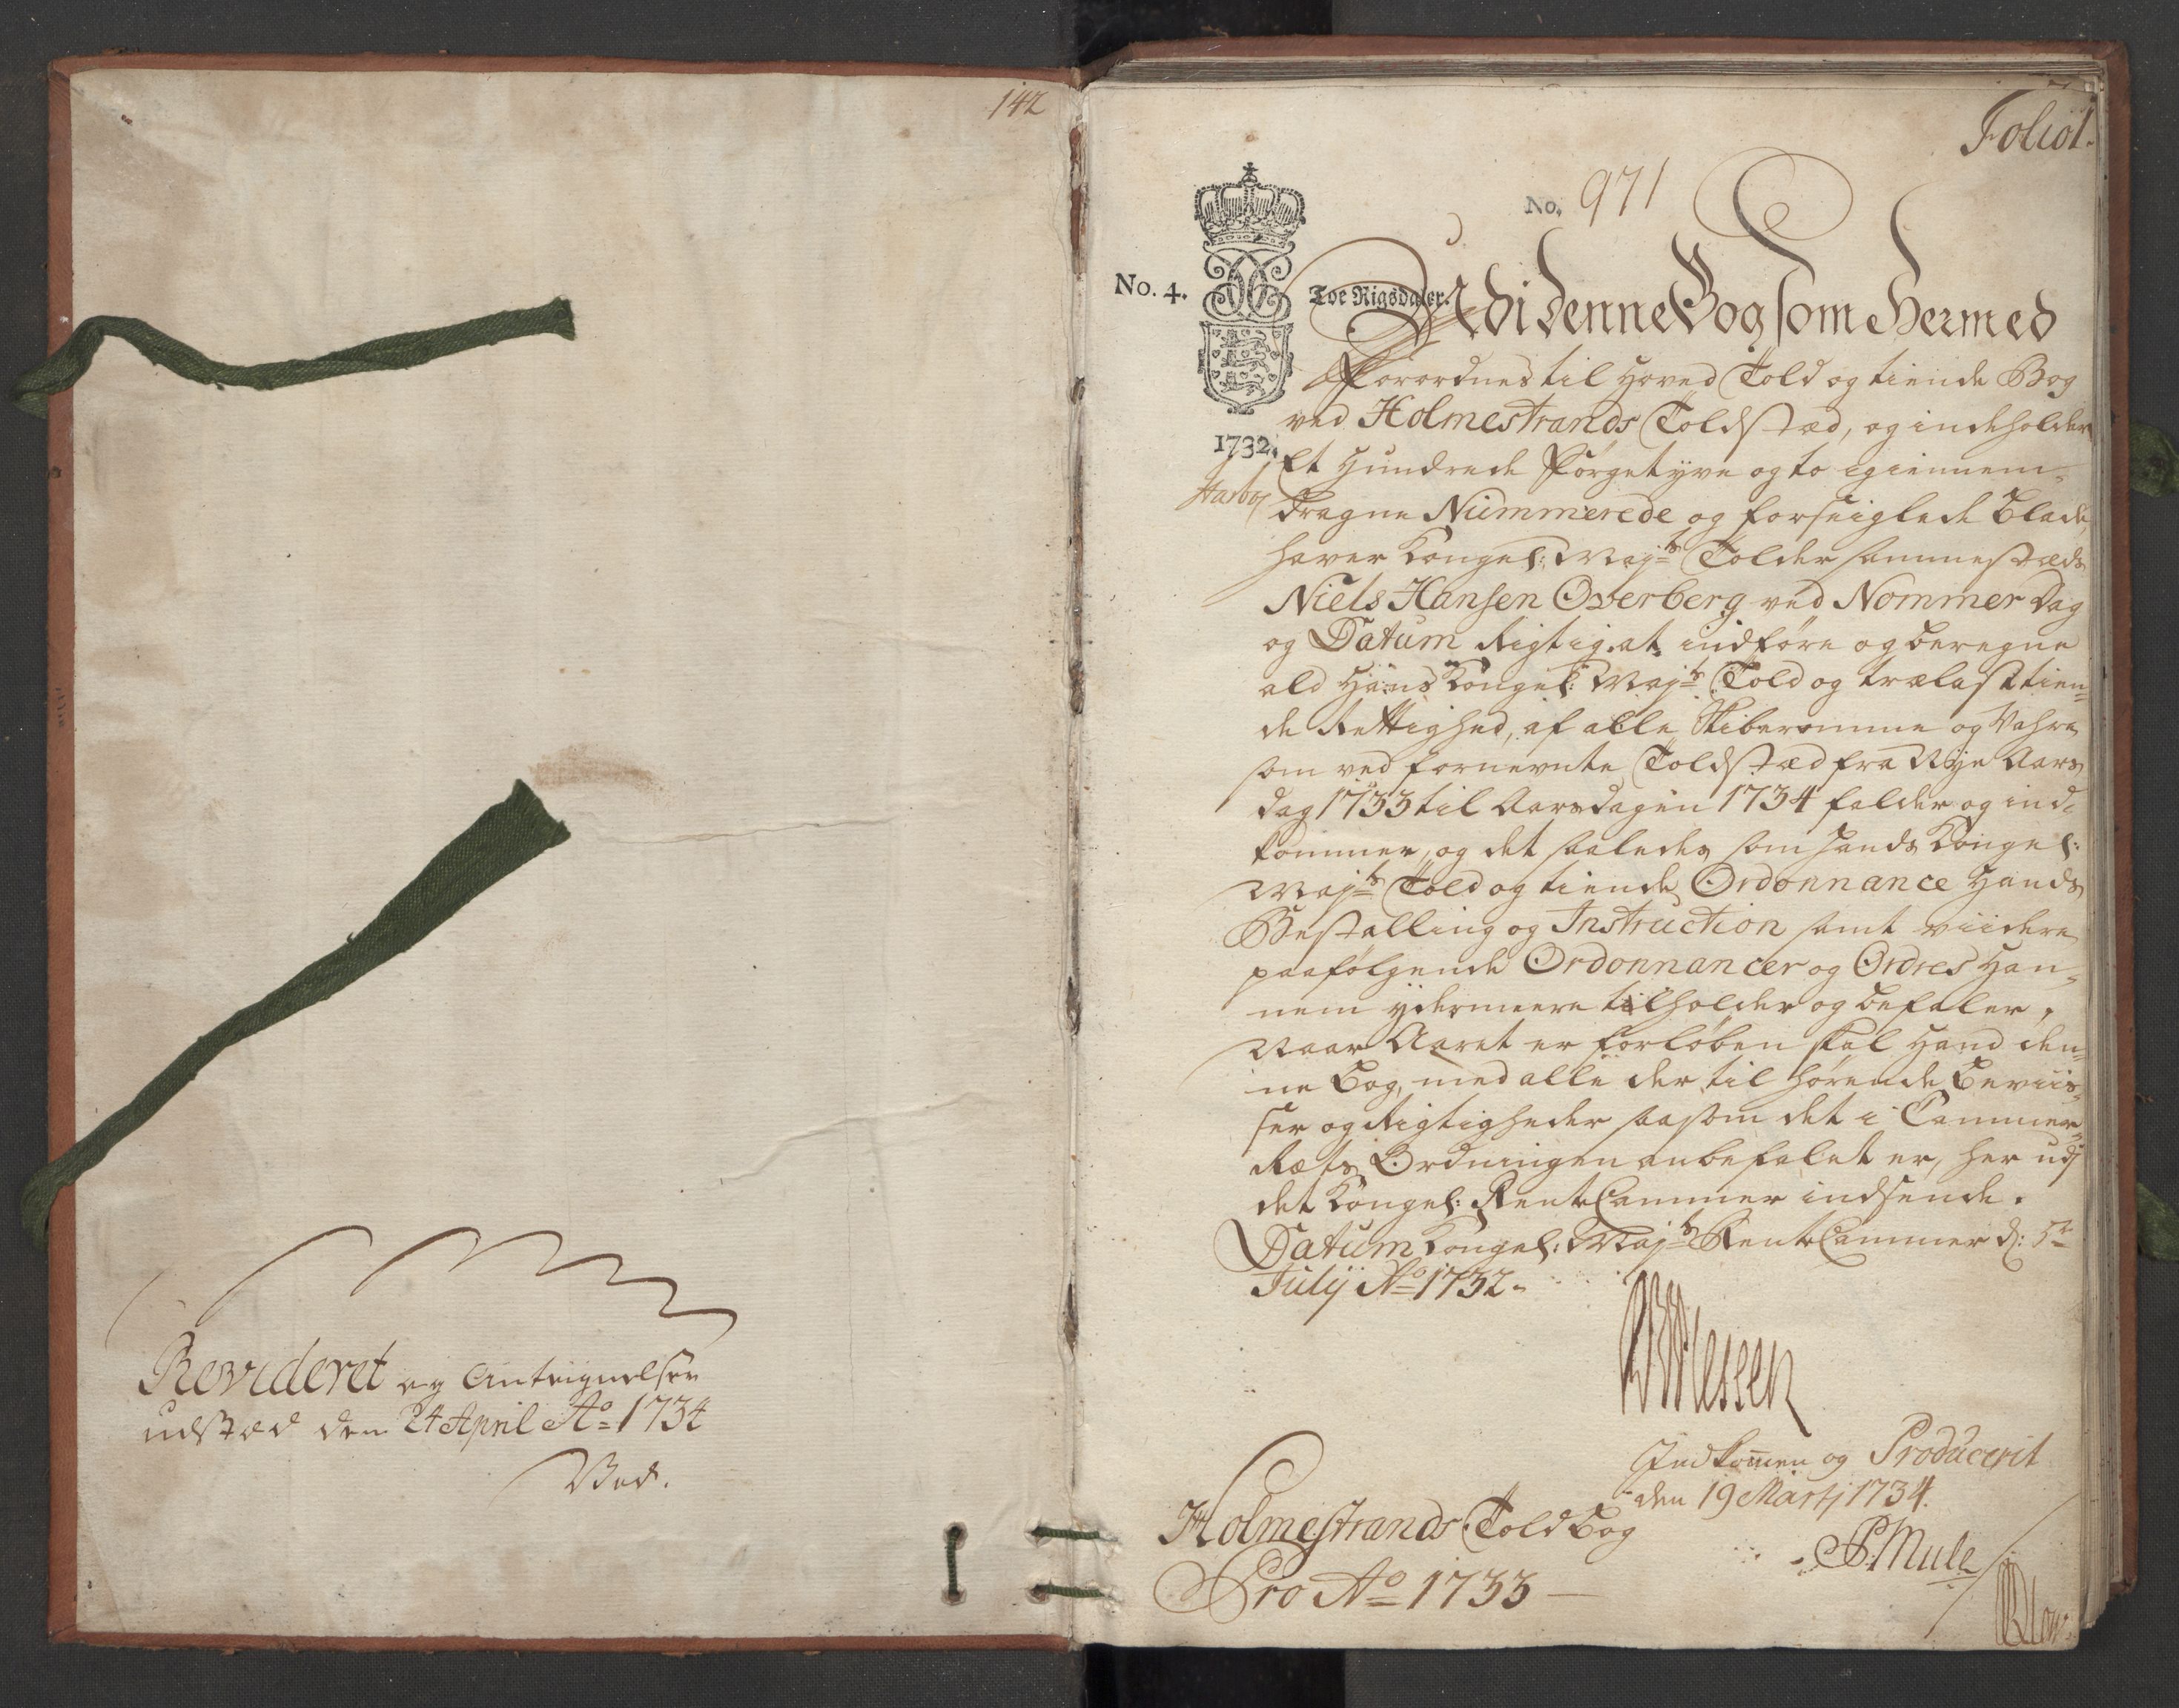 142
Revideret og Antegnelser
udstæd den 24 April Ao 1734
Ved.
Folio 1.
No. 971
No. 4.
Toe Rigsdaler.
1732.
Udi denne Bog som Hermed
Forordnes til Hoved Told og tiende Bog
ved Holmestrands Toldstæd, og indeholder
Et Hundrede Förgetyve og to igiennem-
dragne Nummerede og forseiglede Blade,
haver Kongel: Mayts Tolder sammestæds
Niels Hansen Overberg ved Nommer Dag
og Datum Rigtig at indföre og beregne
ald Hans Kongel: Mayts Told og trælast tien-
de Rettighed, af alle Skiberomme og Vahre
som ved fornevnte Toldstæd fra Nye Aars
dag 1733 til Aarsdagen 1734 falder og ind-
kommer, og det saaledes som hands Kongel:
Mayts Told og tiende Ordonnance Hands
Bestalling og Instruction samt viidere
paafölgende Ordonnancer og Ordres Han-
nem ydermeere tilholder og befaler,
Naar Aaret er forlöben skal Hand den-
ne Bog, med alle der til hörende Beviis-
ser og Rigtigheder saasom det i Cammer
Rets Ordningen anbefalet er, her udj
det Kongel: Rente Cammer indsende.
Datum Kongel: Mayts Rente Cammer d: 5te
Julij Ao 1732.
Indkommen og Producerit
den 19 Martj 1734.
Holmestrands Toldbog
PMule
Pro Ao 1733